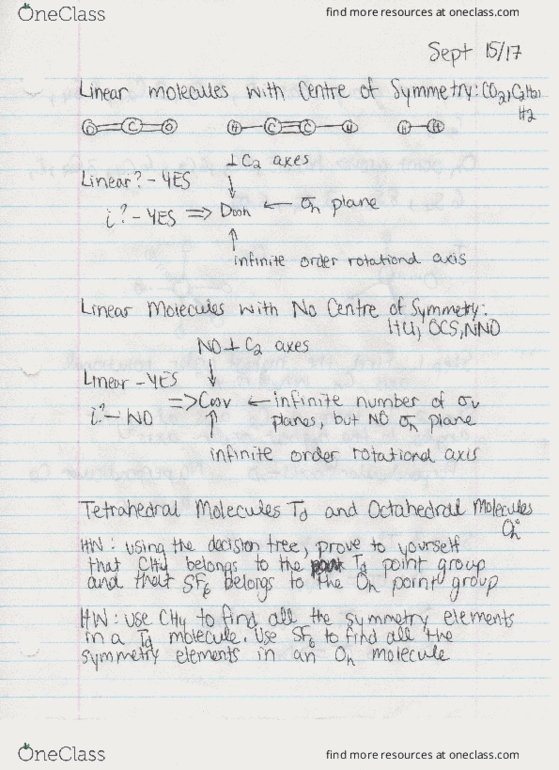 OneClass
find more resources at oneclass.com
Sept 15/17
Linear molecules with Centre of Symmetry: CO2, C2H2,
H2
O C O H C C H H H
⊥ C2 axes
Linear? - YES
i? - YES => D∞h ← σh plane
infinite order rotational axis
Linear Molecules with No Centre of Symmetry:
HCl, OCS, NNO
NO ⊥ C2 axes
Linear - YES
=> C∞v ← infinite number of σv
i? - NO planes, but NO σh plane
infinite order rotational axis
Tetrahedral Molecules Td and Octahedral Molecules
Oh
HW: using the decision tree, prove to yourself
that CH4 belongs to the Td point group
and that SF6 belongs to the Oh point group
HW: use CH4 to find all the symmetry elements
in a Td molecule. Use SF6 to find all the
symmetry elements in an Oh molecule
OneClass
find more resources at oneclass.com